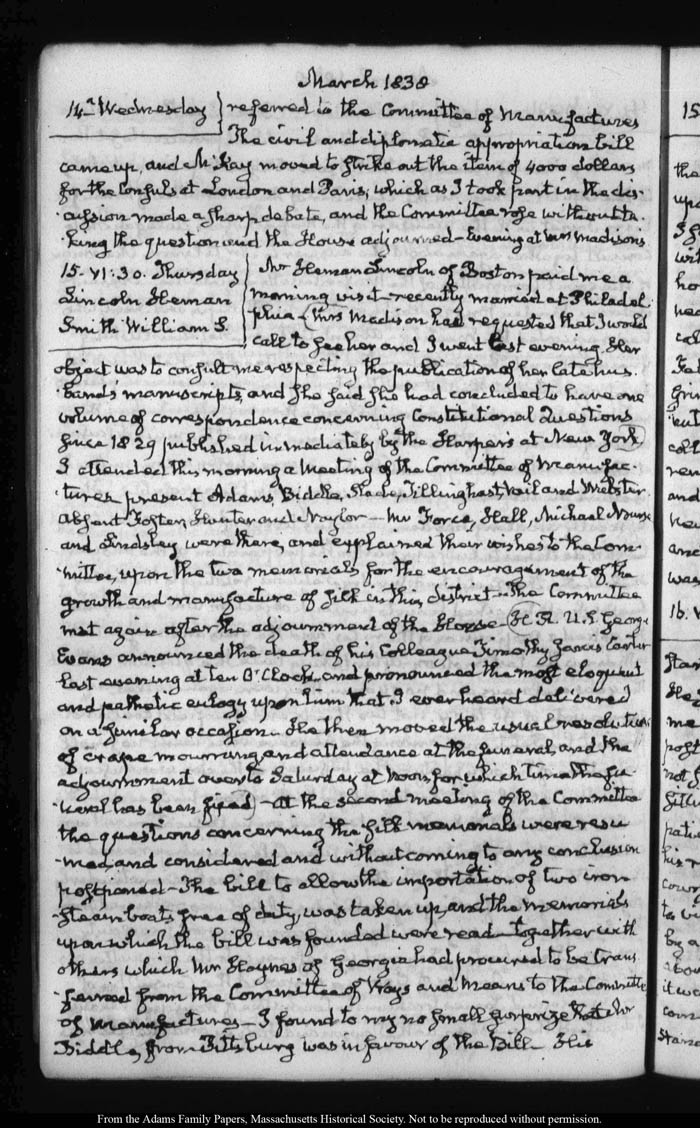 March 1838
14th Wednesday
referred to the Committee of Manufactures
The civil and diplomatic appropriation bill
came up, and McKay moved to strike out the item of 4000 dollars
for the Consuls at London and Paris, which as I took part in the dis-
-cussion made a sharp debate, and the Committee rose without ta-
-king the question and the House adjourned — Evening at Mrs Madison's
15. VI:30. Thursday
Lincoln Heman
Smith William S.
Mr Heman Lincoln of Boston paid me a
morning visit — recently married at Philadel-
phia — (Mrs Madison had requested that I would
call to see her and I went last evening. Her
object was to consult me respecting the publication of her late hus-
-band's manuscripts, and she said she had concluded to have one
volume of correspondence concerning Constitutional Questions
since 1829 published immediately by the Harpers at New York)
I attended this morning a Meeting of the Committee of Manufac-
-tures, present Adams, Biddle, Slade, Tillinghast, Vail and Webster.
absent Foster, Hunter and Naylor — Mr Force, Hall, Michael Nourse
and Lindsley were there, and explained their wishes to the Com-
-mittee, upon the two memorials for the encouragement of the
growth and manufacture of silk in this District — The Committee
met again after the adjournment of the House — (H. R. U.S. George
Evans announced the death of his Colleague Timothy Jarvis Carter
last evening at ten O'Clock, and pronounced the most eloquent
and pathetic eulogy upon him that I ever heard delivered
on a similar occasion. He then moved the usual resolutions
of crape mourning, and attendance at the funeral, and the
adjournment over to Saturday at Noon, for which time the fu-
-neral has been fixed) — At the second meeting of the Committee
the questions concerning the silk memorials were resu-
-med, and considered and without coming to any conclusion
postponed — The bill to allow the importation of two iron
-steam boats free of duty, was taken up, and the memorials
upon which the bill was founded were read — together with
others which Mr Haynes of Georgia had procured to be trans-
-ferred from the Committee of Ways and Means to the Committee
of Manufactures — I found to my no small surprize that Mr
Biddle, from Pittsburg was in favour of the Bill — His
15
the
16. V
From the Adams Family Papers, Massachusetts Historical Society. Not to be reproduced without permission.